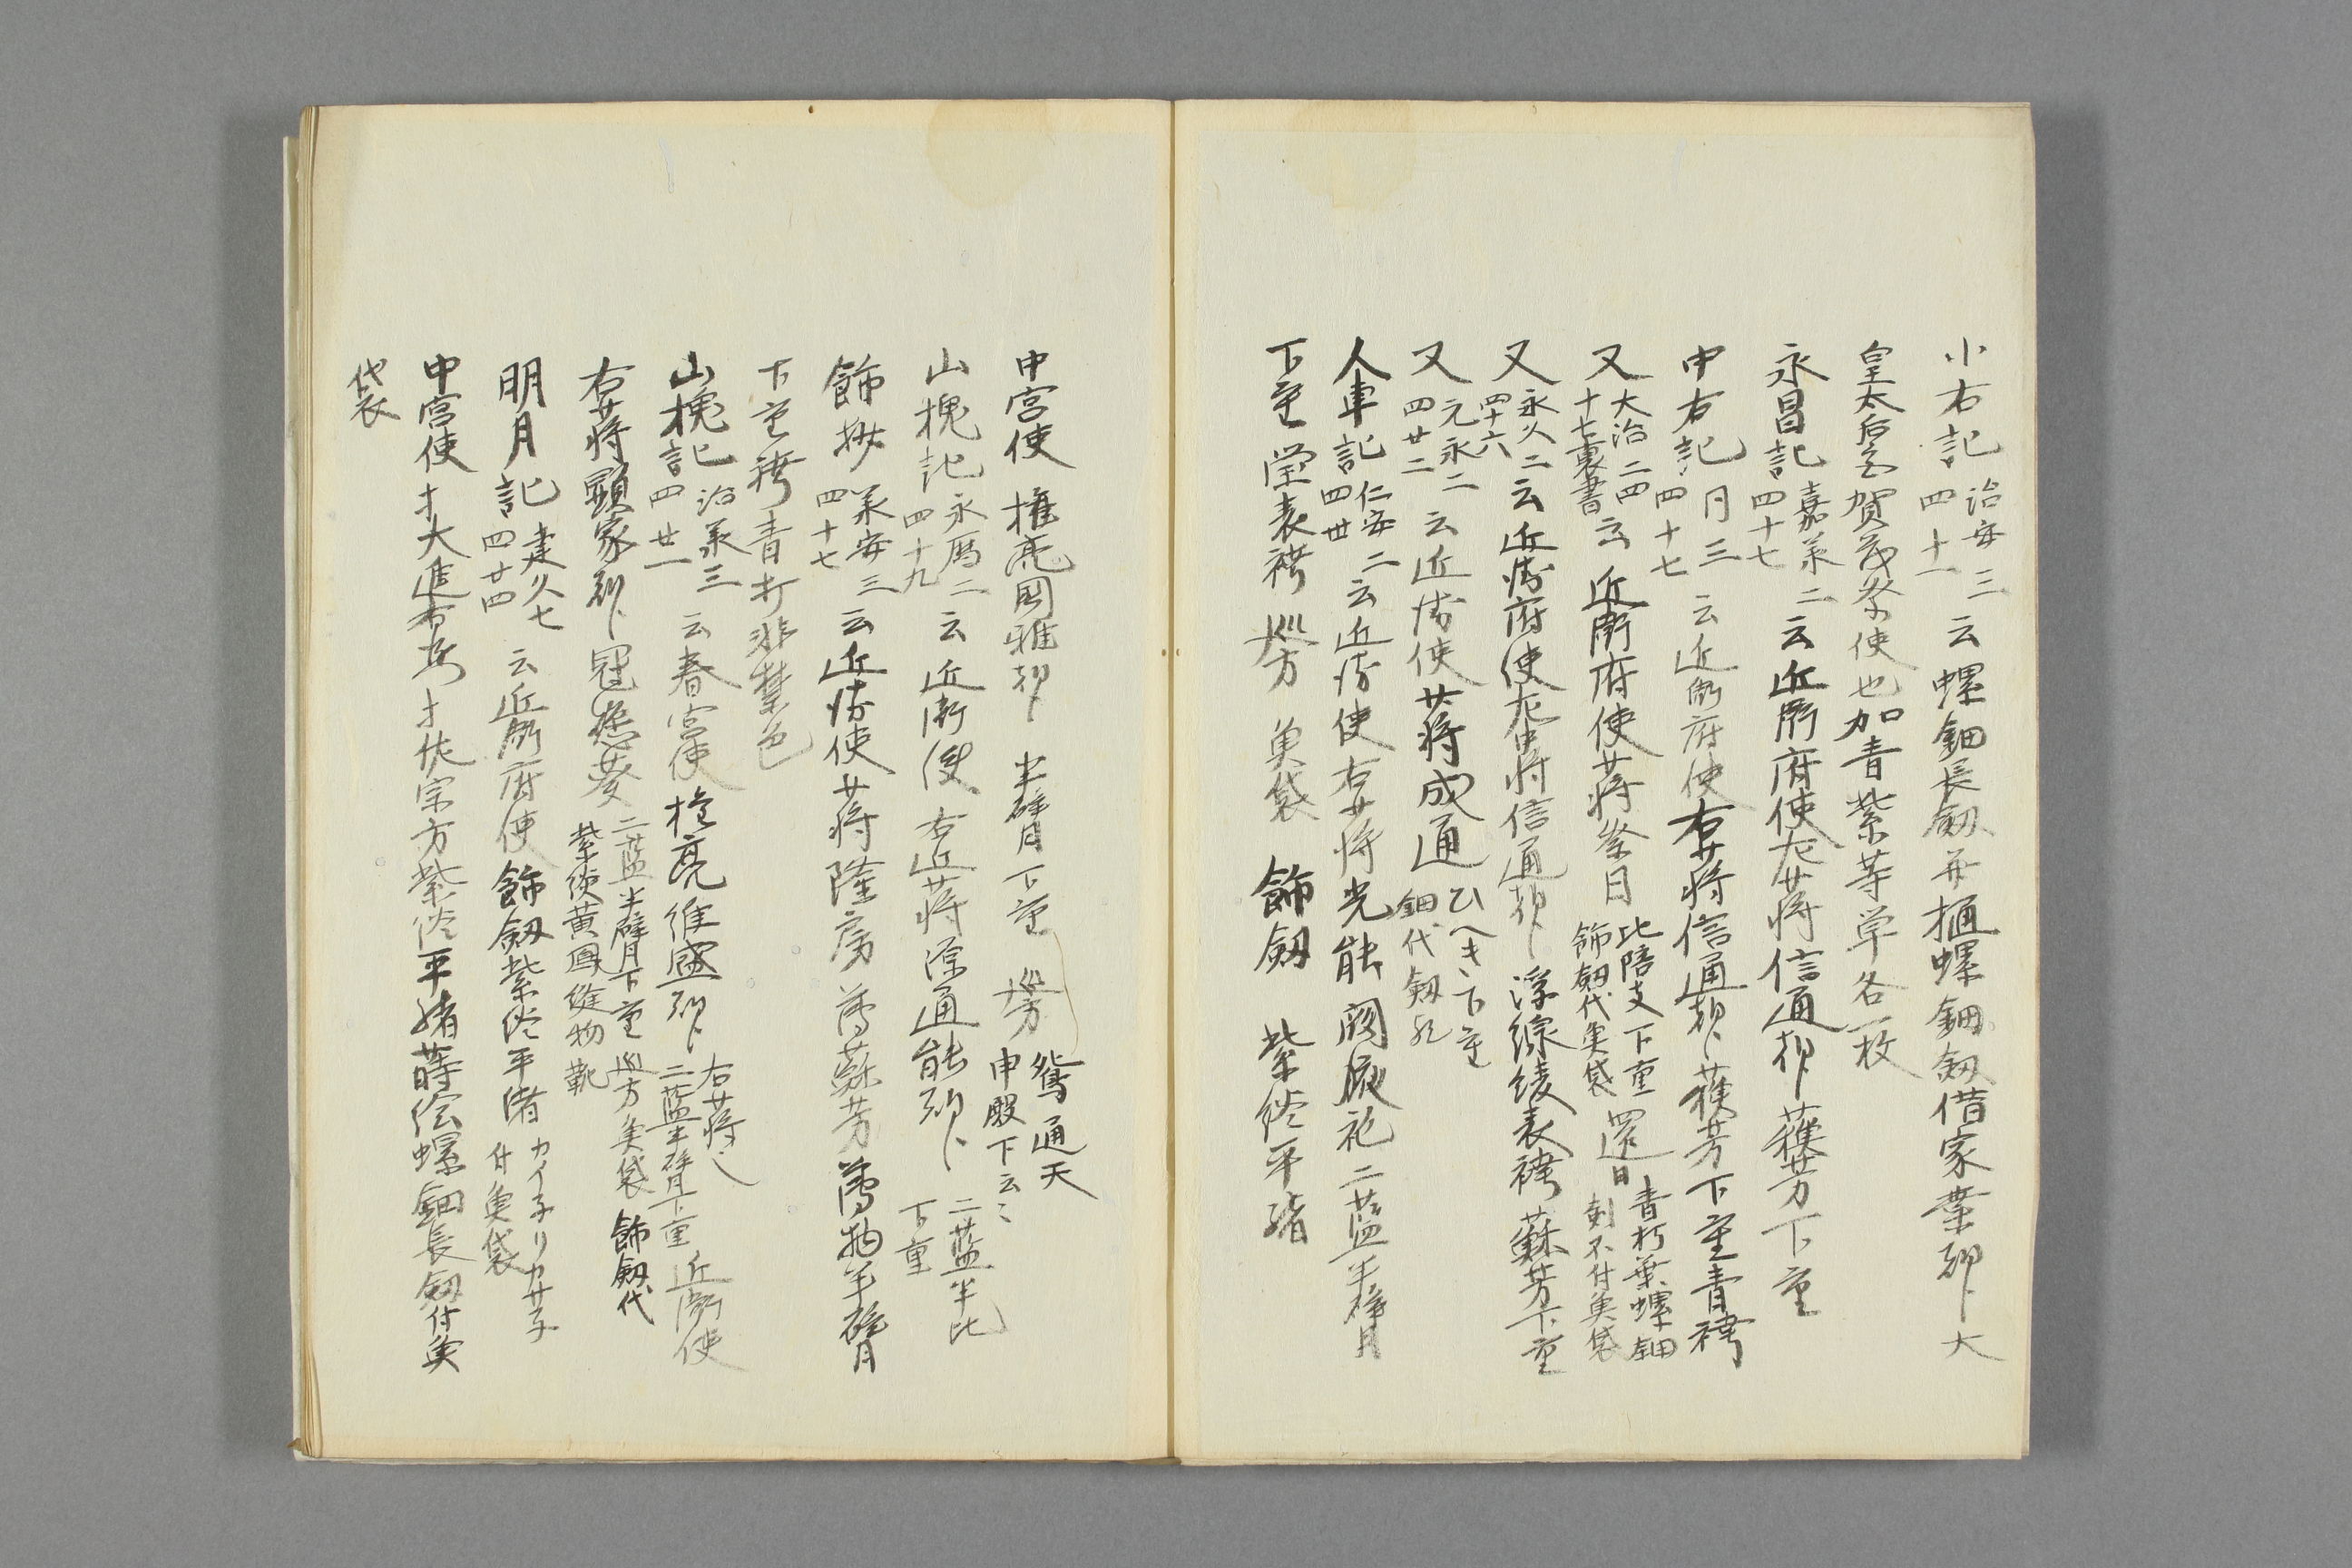 小右記 治安三 四十一 云螺鈿長釼并樋螺鈿釼借家業朝卜大
皇太后宮賀茂祭使也加青紫等革各一枚
永昌記 嘉承二 四十七 云近衛府使左少将信通朝卜蘓芳下重
中右記 同三 四十七 云近衛府使右少将信通朝卜蘓芳下重青袴
又 大治二四 十七裏書 云近衛府使少将祭日 比陪支下重 飾釼代魚袋 還日 青朽葉螺鈿 剣不付魚袋
又 永久二 四十六 云近衛府使左中将信通朝卜浮線綾表袴蘇芳下重
又 元永二 四廿二 云近衛使少将成通 ひへき下重 鈿代釼
人車記 仁安二 四廿 云近衛使右少将光能闕腋袍二藍半臂
下重堂表袴 巡方 魚袋 飾釼 紫終平緒
中宮使 権亮国雅朝卜 半臂下重 巡方 鴛通天 申殿下云〻
山槐記 永暦二 四十九 云近衛使右近少将源通能朝卜 二藍半比 下重
飾抄 承安三 四十七 云近衛使少将隆房 薄蘇芳薄物半臂
下重袴青打非禁色
山槐記 治承三 四廿一 云春宮使権亮維盛朝卜 右少将〻 二藍半臂下重 近衛使
右少将顕家朝卜冠懸葵 二藍半臂下重 巡方魚袋 飾釼代 紫終黄鳳縫物 靴
明月記 建久七 四廿四 云近衛府使飾釼紫終平緒 カイ子リカサ子 付魚袋
中宮使 才大進右少才佐宗方紫終平緒蒔絵螺鈿長釼付魚
袋